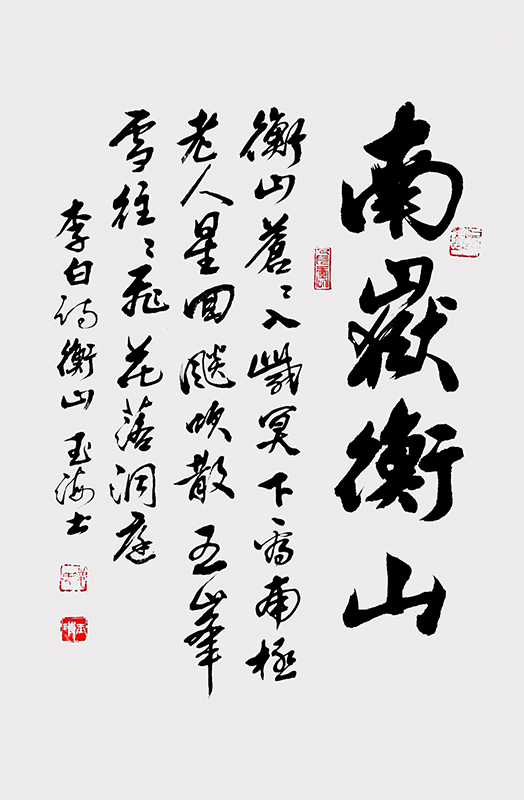 南嶽衡山
衡山蒼〻入紫冥下看南極
老人星回飈吹散五峯
雪往〻飛花落洞庭
李白詩衡山玉海書